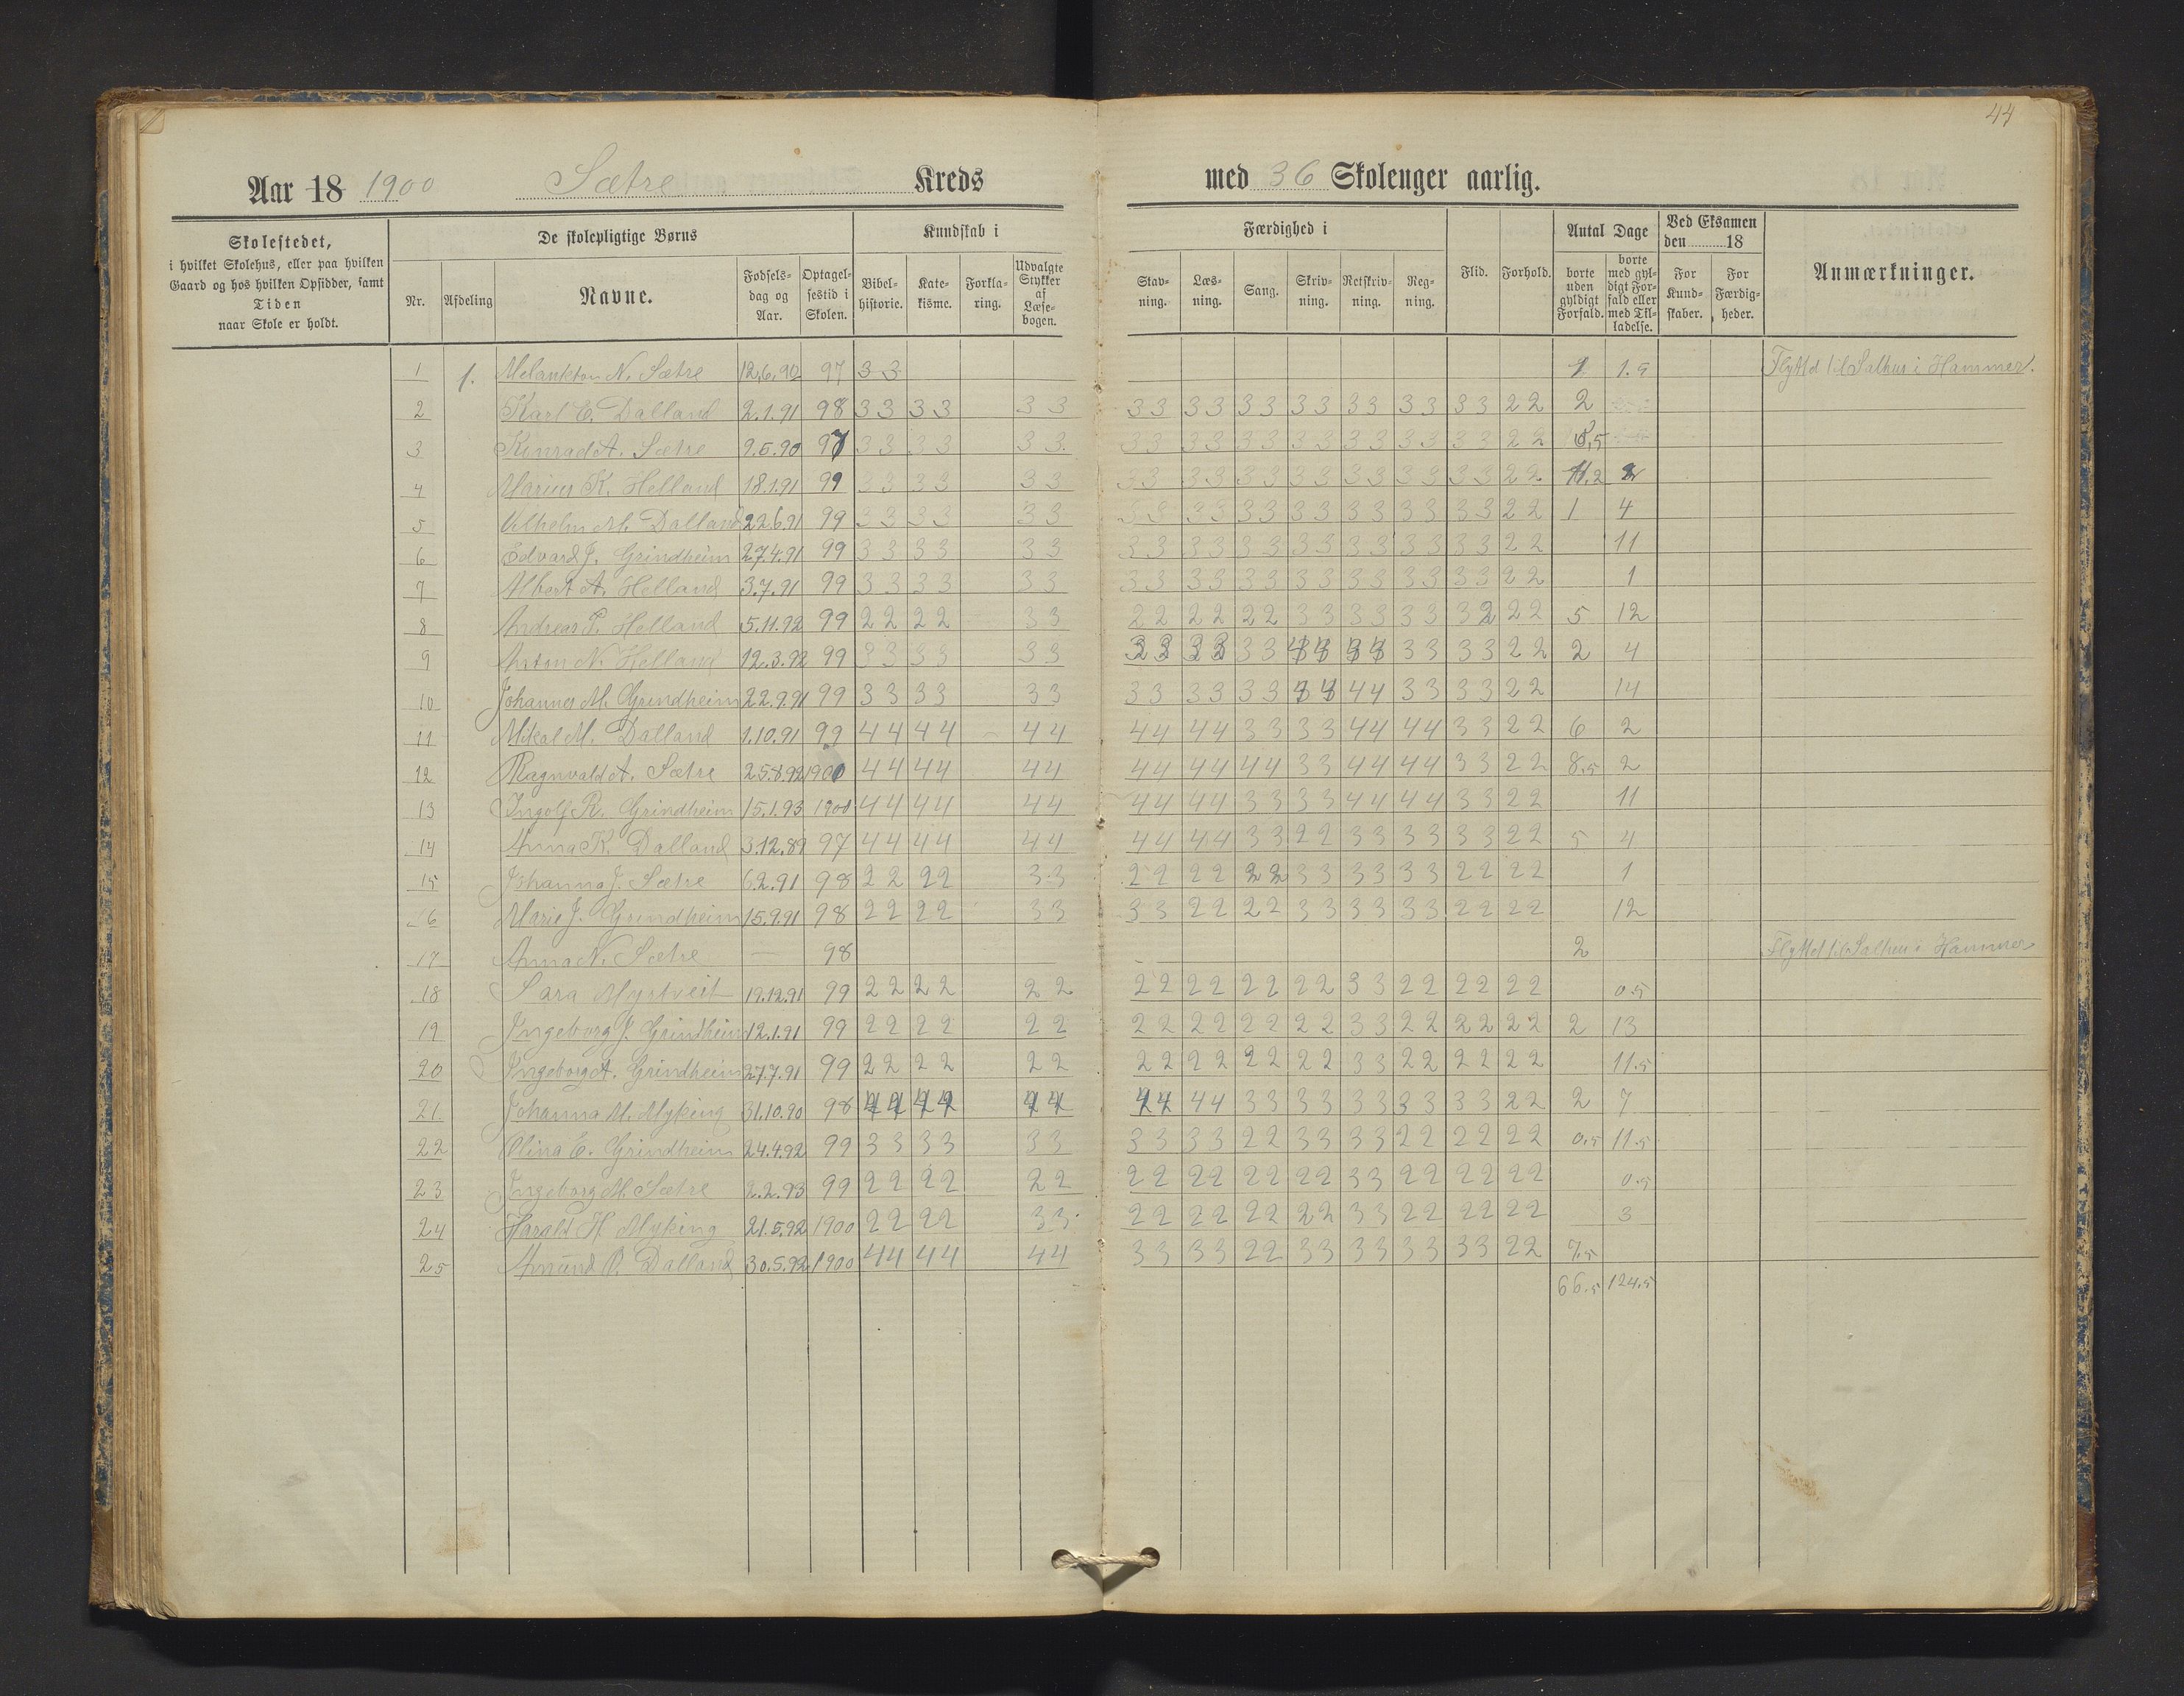 44
Aar 18 1900 Sætre Kreds med 36 Skoleuger aarlig.
Skolestedet, i hvilket Skolehus, eller paa hvilken Gaard og hos hvilken Opsidder, samt Tiden naar Skole er holdt.
De skolepligtige Børns
Nr. Afdeling Navne. Fødselsdag og Aar. Optagelsestid i Skolen.
Kundskab i
Bibelhistorie. Katekisme. Forklaring. Udvalgte Stykker af Læsebogen.
Færdighed i
Stavning. Læsning. Sang. Skrivning. Retskrivning. Regning.
Flid. Forhold.
Antal Dage
borte uden gyldigt Forfald. borte med gyldigt Forfald eller med Tilladelse.
Ved Eksamen den 18
For Kundskaber. For Færdigheder.
Anmærkninger.
1 1. Melankton N. Sætre 12.6.90 97 3 3 Flyttd til Salhus i Hammer.
2 Karl E. Dalland 2.1.91 98 3 3 3 3 3 3 3 3 3 3 3 3 3 3 3 3 3 3 3 3 2 2 2
3 Konrad A. Sætre 9.5.90 97 3 3 3 3 3 3 3 3 3 3 3 3 3 3 3 3 3 3 3 3 2 2
4 Marius K. Helland 18.1.91 99 3 3 3 3 3 3 3 3 3 3 3 3 3 3 3 3 3 3 3 3 2 2
5 Vilhelm M. Dalland 22.6.91 99 3 3 3 3 3 3 3 3 3 3 3 3 3 3 3 3 3 3 3 3 2 2 1 4
6 Edvard J. Grindheim 27.4.91 99 3 3 3 3 3 3 3 3 3 3 3 3 3 3 3 3 3 3 3 3 2 2 11
7 Albert A. Helland 3.7.91 99 3 3 3 3 3 3 3 3 3 3 3 3 3 3 3 3 3 3 3 3 2 2 1
8 Andreas P. Helland 5.11.92 99 2 2 2 2 3 3 2 2 2 2 2 2 3 3 3 3 3 3 3 2 2 2 5 12
9 Anton N. Helland 12.3.92 99 3 3 3 3 3 3 3 3 3 3 3 3 2 2 2 4
10 Johannes M. Grindheim 22.9.91 99 3 3 3 3 3 3 3 3 3 3 3 3 4 4 3 3 3 3 2 2 14
11 Mikal M. Dalland 1.10.91 99 4 4 4 4 4 4 4 4 4 4 3 3 3 3 4 4 4 4 3 3 2 2 6 2
12 Ragnvald A. Sætre 25.8.92 1900 4 4 4 4 4 4 4 4 4 4 4 4 3 3 4 4 4 4 3 3 2 2 8.5 2
13 Ingolf R. Grindheim 15.1.93 1900 4 4 4 4 4 4 4 4 4 4 3 3 3 3 4 4 4 4 3 3 2 2 11
14 Anna K. Dalland 3.12.89 97 4 4 4 4 4 4 4 4 4 4 3 3 2 2 3 3 3 3 3 3 2 2 5 4
15 Johanna J. Sætre 6.2.91 98 2 2 2 2 3 3 2 2 2 2 2 2 3 3 3 3 3 3 2 2 2 2 1
16 Marie J. Grindheim 15.9.91 98 2 2 2 2 3 3 3 3 2 2 2 2 3 3 3 3 3 3 2 2 2 2 12
17 Anna N. Sætre — 98 2 Flyttet til Salhus i Hammer
18 Sara Myrtveit 19.12.91 99 2 2 2 2 2 2 2 2 2 2 2 2 2 2 3 3 2 2 2 2 2 2 0.5
19 Ingeborg J. Grindheim 12.1.91 99 2 2 2 2 2 2 2 2 2 2 2 2 2 2 3 3 2 2 2 2 2 2 2 13
20 Ingeborg A. Grindheim 27.7.91 99 2 2 2 2 2 2 2 2 2 2 2 2 2 2 3 3 2 2 2 2 2 2 11.5
21 Johanna M. Myking 31.10.90 98 4 4 4 4 4 4 4 4 4 4 3 3 3 3 3 3 3 3 3 3 2 2 2 7
22 Olina E. Grindheim 24.4.92 99 3 3 3 3 3 3 3 3 3 3 2 2 3 3 3 3 2 2 2 2 2 2 0.5 11.5
23 Ingeborg M. Sætre 2.2.93 99 2 2 2 2 2 2 2 2 2 2 2 2 2 2 3 3 2 2 2 2 2 2 0.5
24 Harald H. Myking 21.5.92 1900 2 2 2 2 3 3 2 2 2 2 2 2 2 2 3 3 2 2 2 2 2 2 3
25 Amund O. Dalland 30.5.92 1900 4 4 4 4 4 4 3 3 3 3 2 2 3 3 3 3 3 3 3 3 2 2 7.5
66.5 124.5